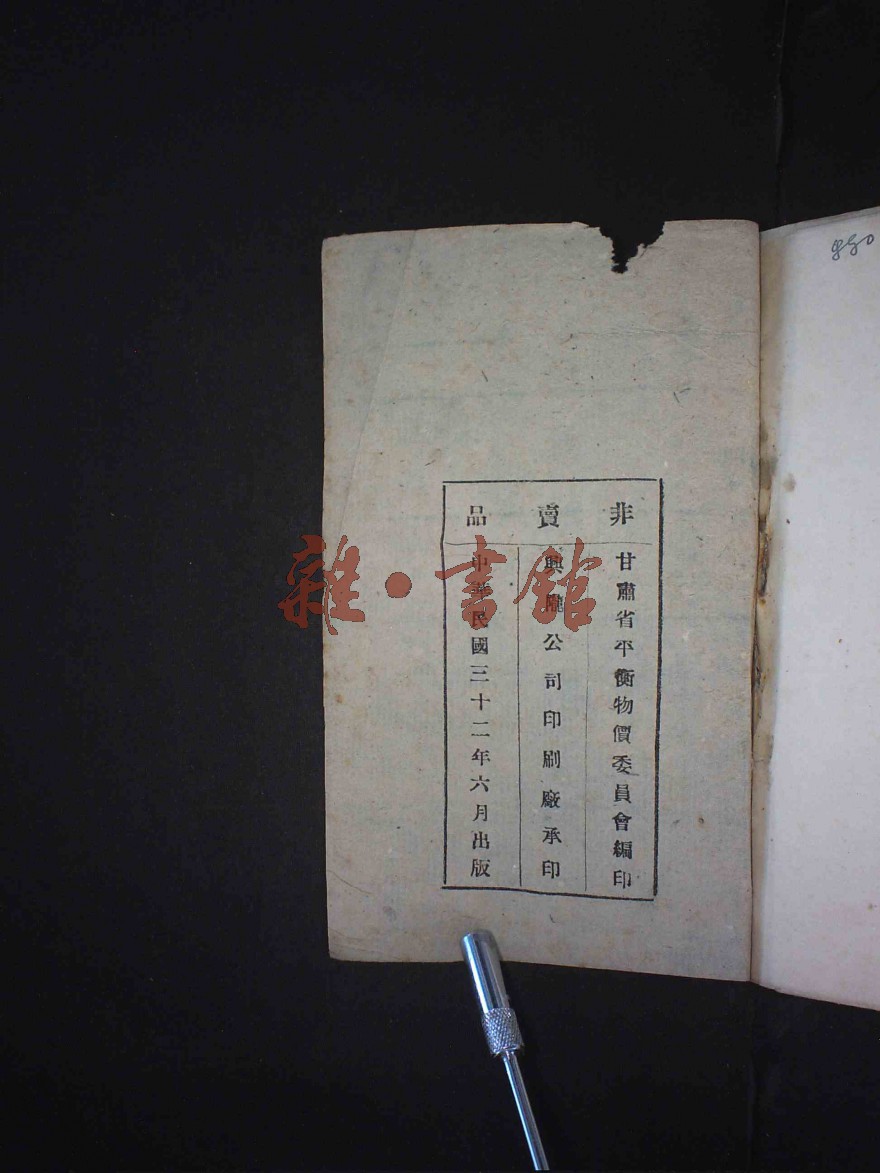 非賣品
甘肅省平衡物價委員會編印
興隴公司印刷廠承印
中華民國三十二年六月出版
雜·書館
850